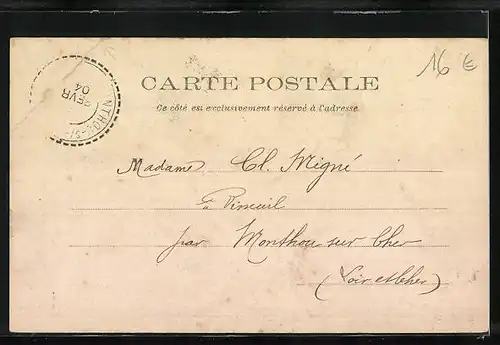 16 €
CARTE POSTALE
Ce côté est exclusivement réservé à l'adresse.
FEVR
04
NTHOU-S
Madame Cl. Migné
à Rimeuil
par Monthou sur Cher
(Loir et Cher)